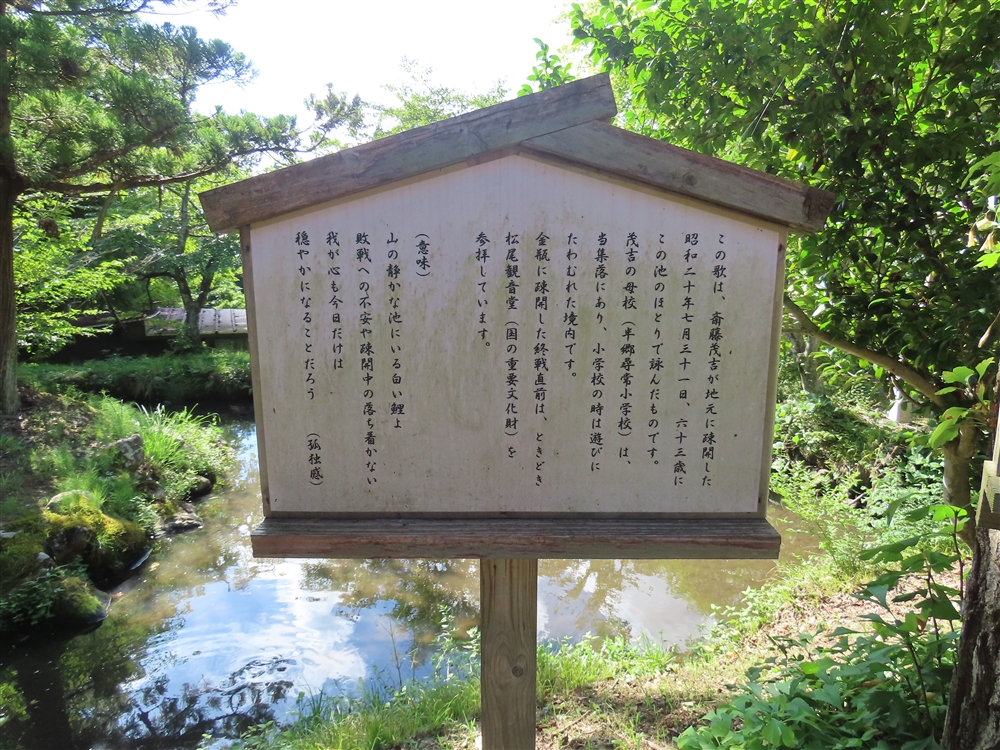 この歌は、斎藤茂吉が地元に疎開した
昭和二十年七月三十一日、六十三歳に
この池のほとりで詠んだものです。
茂吉の母校（半郷尋常小学校）は、
当集落にあり、小学校の時は遊びに
たわむれた境内です。
金瓶に疎開した終戦直前は、ときどき
松尾観音堂（国の重要文化財）を
参拝しています。
（意味）
山の静かな池にいる白い鯉よ
敗戦への不安や疎開中の落ち着かない
我が心も今日だけは
穏やかになることだろう　（孤独感）